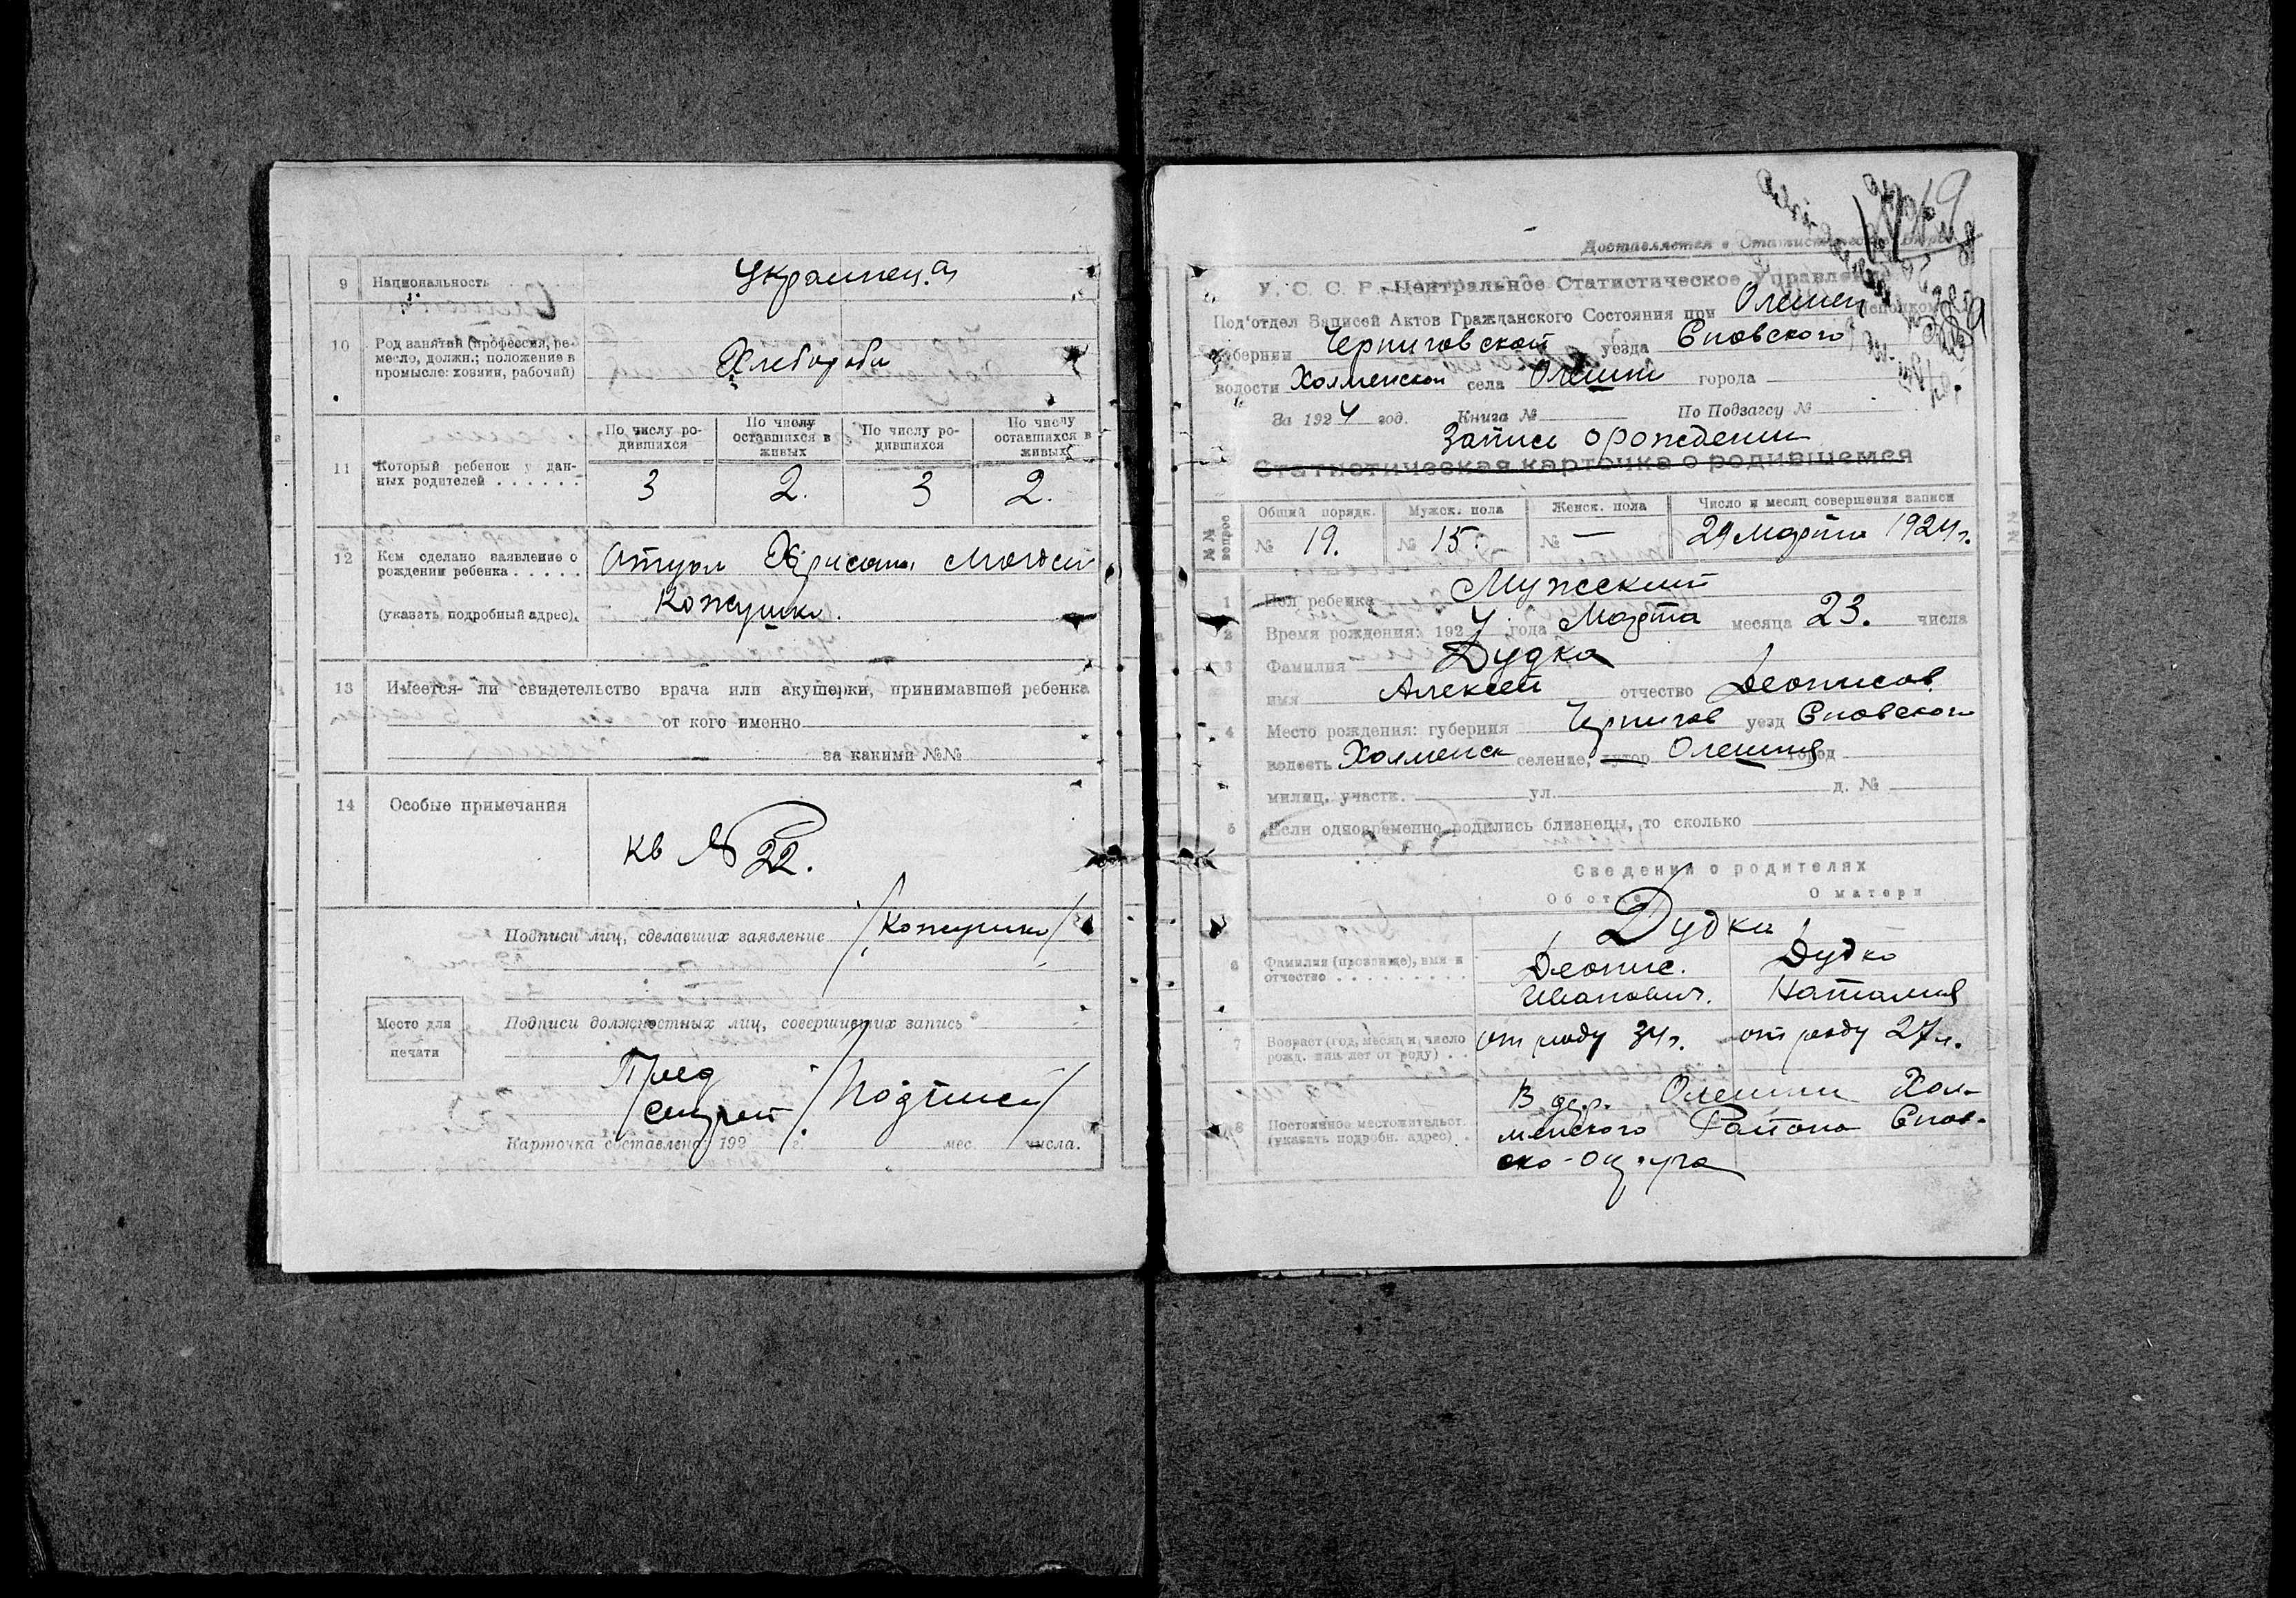 9 Национальность Украинец.
10 Род занятий (профессия, ре-
месло, должн.; положение в
промысле: хозяин, рабочий)
Хлебороби
По числу ро-
дившихся
По числу
оставшихся в
живых
По числу ро-
дившихся
По числу
оставшихся в
живых
11 Который ребенок у дан-
ных родителей . . . . . .
3 2. 3 2.
12 Кем сделано заявление о
рождении ребенка . . . . .
(указать подробный адрес).
Отцом
Кожушко.
13 Имеется- ли свидетельство врача или акушерки, принимавшей ребенка
от кого именно
за какими №№
14 Особые примечания
кв № 22.
Подписи лиц, сделавших заявление /Кожушко/
Место для
печати
Подписи должностных лиц, совершивших запись
Пред
Секрет. /Подписи/
Карточка составлена: 192 г. мес. числа.
Доставляется в Статистическое Бюро
У. С. С. Р. Центральное Статистическое Управление
Под'отдел Записей Актов Гражданского Состояния при Олешен
губернии Черниговской уезда Сновского
волости Холменской села Олешни города
За 1924 год. Книга № По Подзагсу №
Запись о рождении
Статистическая карточка о родившемся
№№ вопрос
Общий порядк. Мужск. пола Женск. пола Число и месяц совершения записи
№ 19. № 15. № — 29 Марта 1924 г.
1 Пол ребенка Мужеский
2 Время рождения: 1924 года Марта месяца 23. числа
3 Фамилия Дудка
имя Алексей отчество Деонисов
4 Место рождения: губерния Чернигов уезд Сновского
волость Холменск селение, хутор Олешня город
милиц. участк. ул. д. №
5 Если одновременно родились близнецы, то сколько
Сведения о родителях
Об отце О матери
6 Фамилия (прозвище), имя и
отчество . . . . . . . . .
Дудка
Деонис. Дудко
Иванович. Наталия
7 Возраст (год, месяц и число
рожд. или лет от роду) . .
от роду 34 г. от роду 27 л.
8 Постоянное местожительст.
(указать подробн. адрес) .
В дер. Олешни Хол-
менского Района Снов-
ско-округа